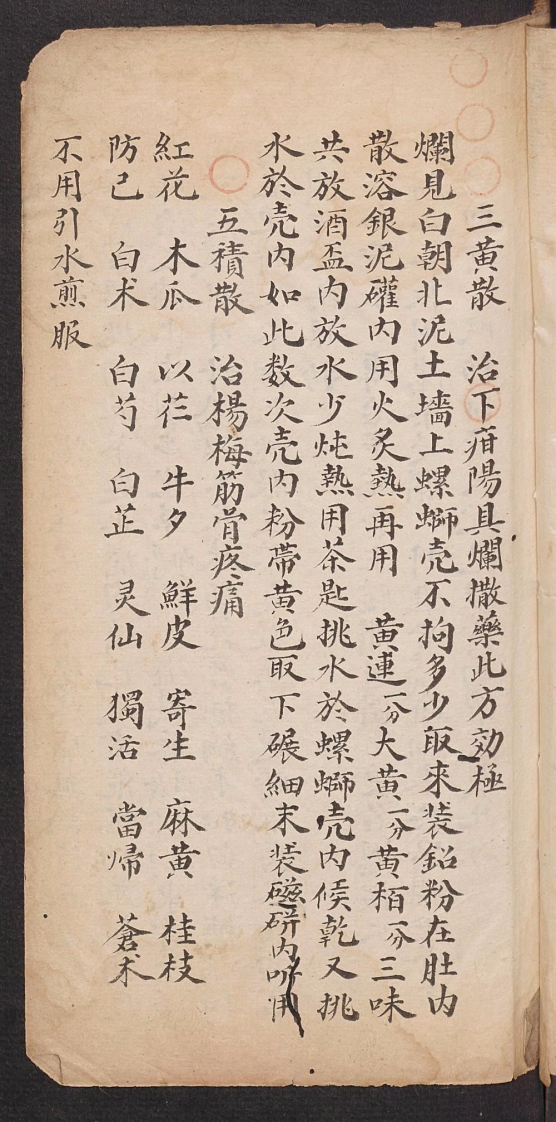 三黄散 治下疳陽具爛撒藥此方効極
爛見白朝北泥土墻上螺螄壳不拘多少取來装鉛粉在肚内
散溶銀泥礶内用火炙熱再用 黄連一分大黄一分黄栢一分三味
共放酒盃内放水少炖熱用茶匙挑水於螺螄壳内候乾又挑
水於壳内如此数次壳内粉帶黄色取下碾細末装磁硑内听用
五積散 治楊梅筋骨疼痛
紅花 木瓜 以芢 牛夕 鮮皮 寄生 麻黄 桂枝
防己 白术 白芍 白芷 灵仙 獨活 當帰 蒼术
不用引水煎服